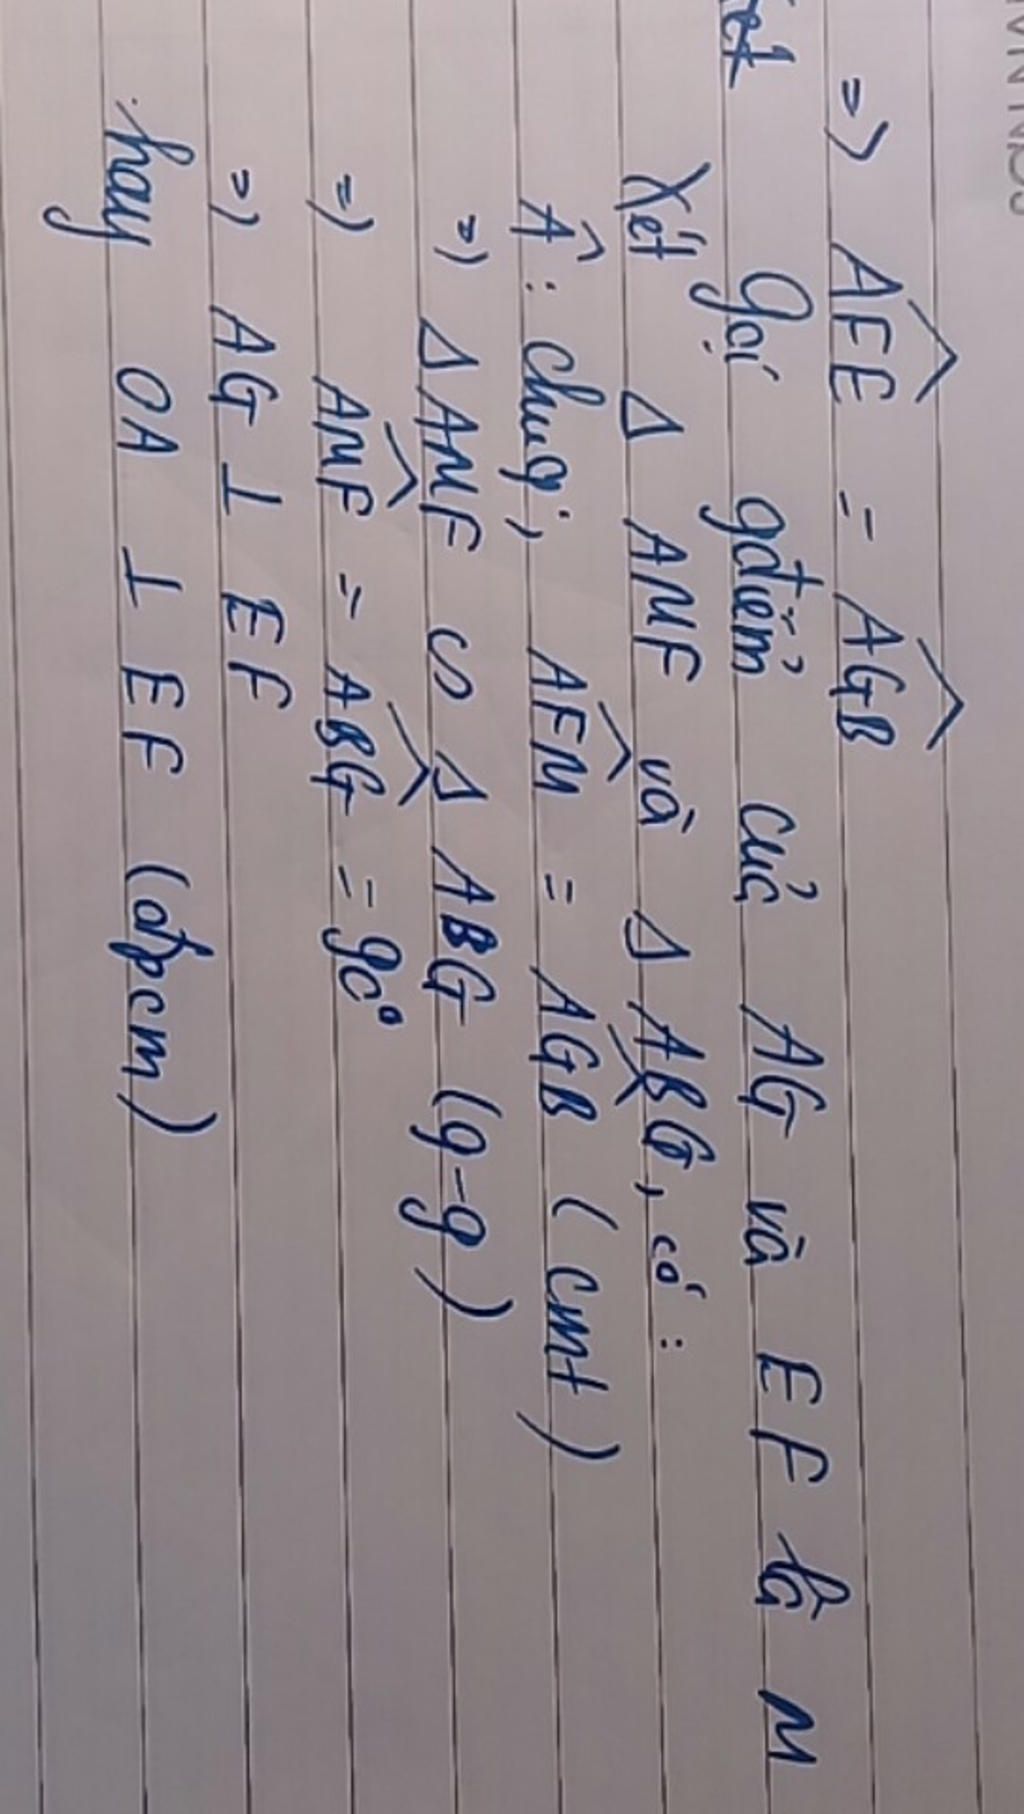 => AFE = AGB
Gọi gđiểm của AG và EF là M
Xét Δ AMF và Δ ABG, có :
Â : chung; AFM = AGB (cmt)
=> Δ AMF ∽ Δ ABG (g-g)
=> AMF = ABG = 90°
=> AG ⊥ EF
hay OA ⊥ EF (đpcm)